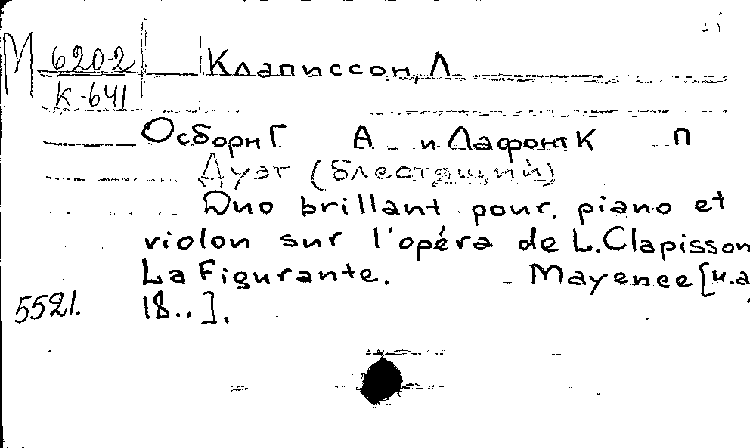 М 6202 Клаписсон, Л
К-641
Осборн Г А и Лафонт К П
Дуэт (блестящий)
Duo brillant pour piano et
violon sur l'opéra de L. Clapisson
La Figurante. - Mayence [и.а
5521. 18..].